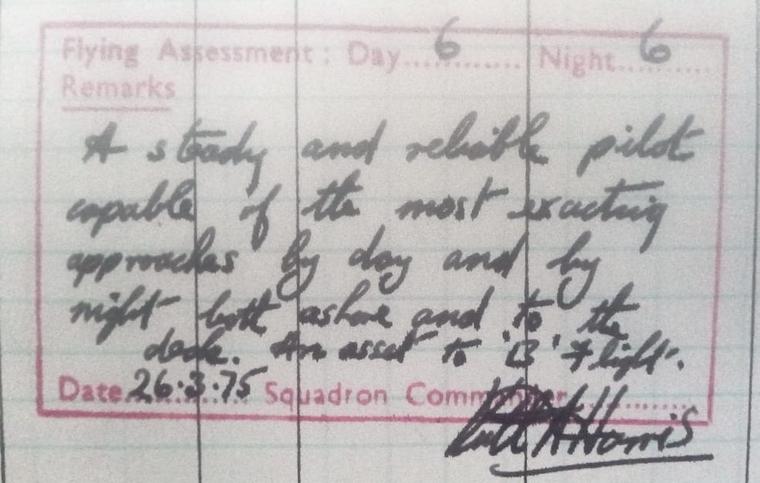 Flying Assessment: Day....6........ Night...6......
Remarks
A steady and reliable pilot
capable of the most exacting
approaches by day and by
night both ashore and to the
deck. An asset to 'B' Flight.
Date 26.3.75 Squadron Commander............
Harris